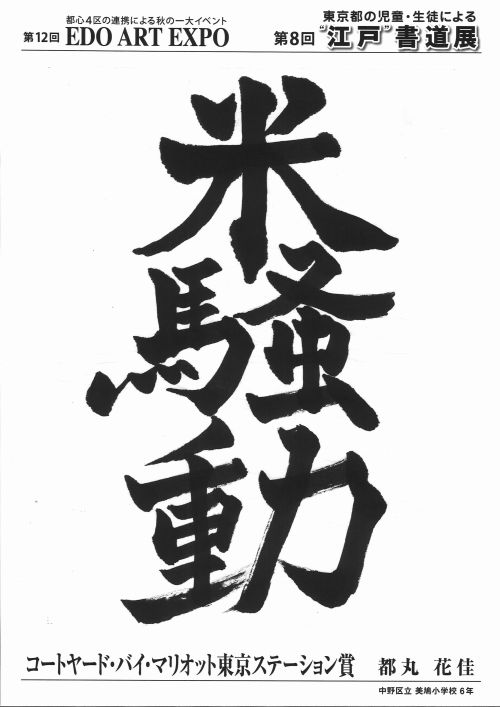 都心4区の連携による秋の一大イベント
第12回 EDO ART EXPO
東京都の児童・生徒による
第8回 “江戸”書道展
米騒動
コートヤード・バイ・マリオット東京ステーション賞 都丸 花佳
中野区立 美鳩小学校 6年